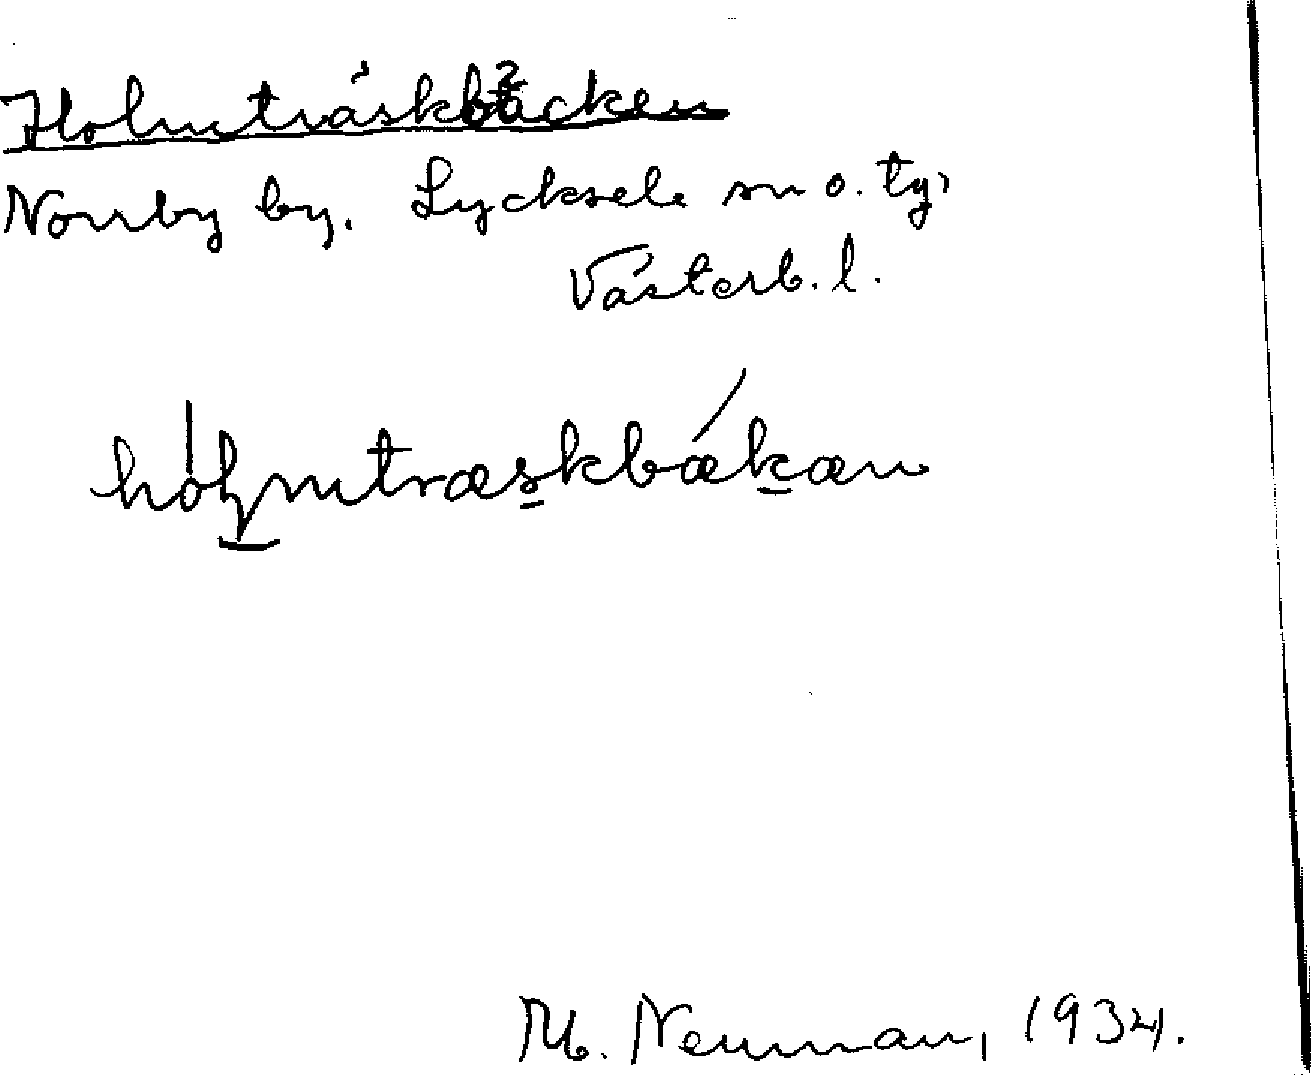 Holmträskbäcken
Norrby by. Lycksele sn o. tg,
Västerb. l.
hólmtræskbækæn
M. Neuman, 1934.